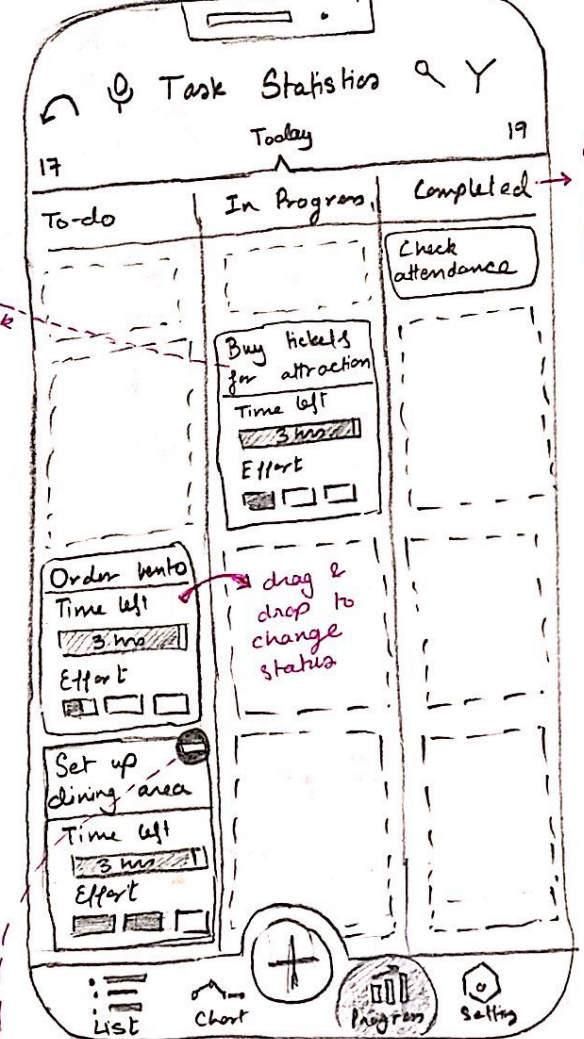 Task Statistics
Today
17
19
To-do
In Progress
Completed
Check
attendance
Buy tickets
for attraction
Time left
3 hrs
Effort
Order bento
Time left
3 hrs
Effort
drag &
drop to
change
status
Set up
dining area
Time left
3 hrs
Effort
List
Chart
Progress
Setting